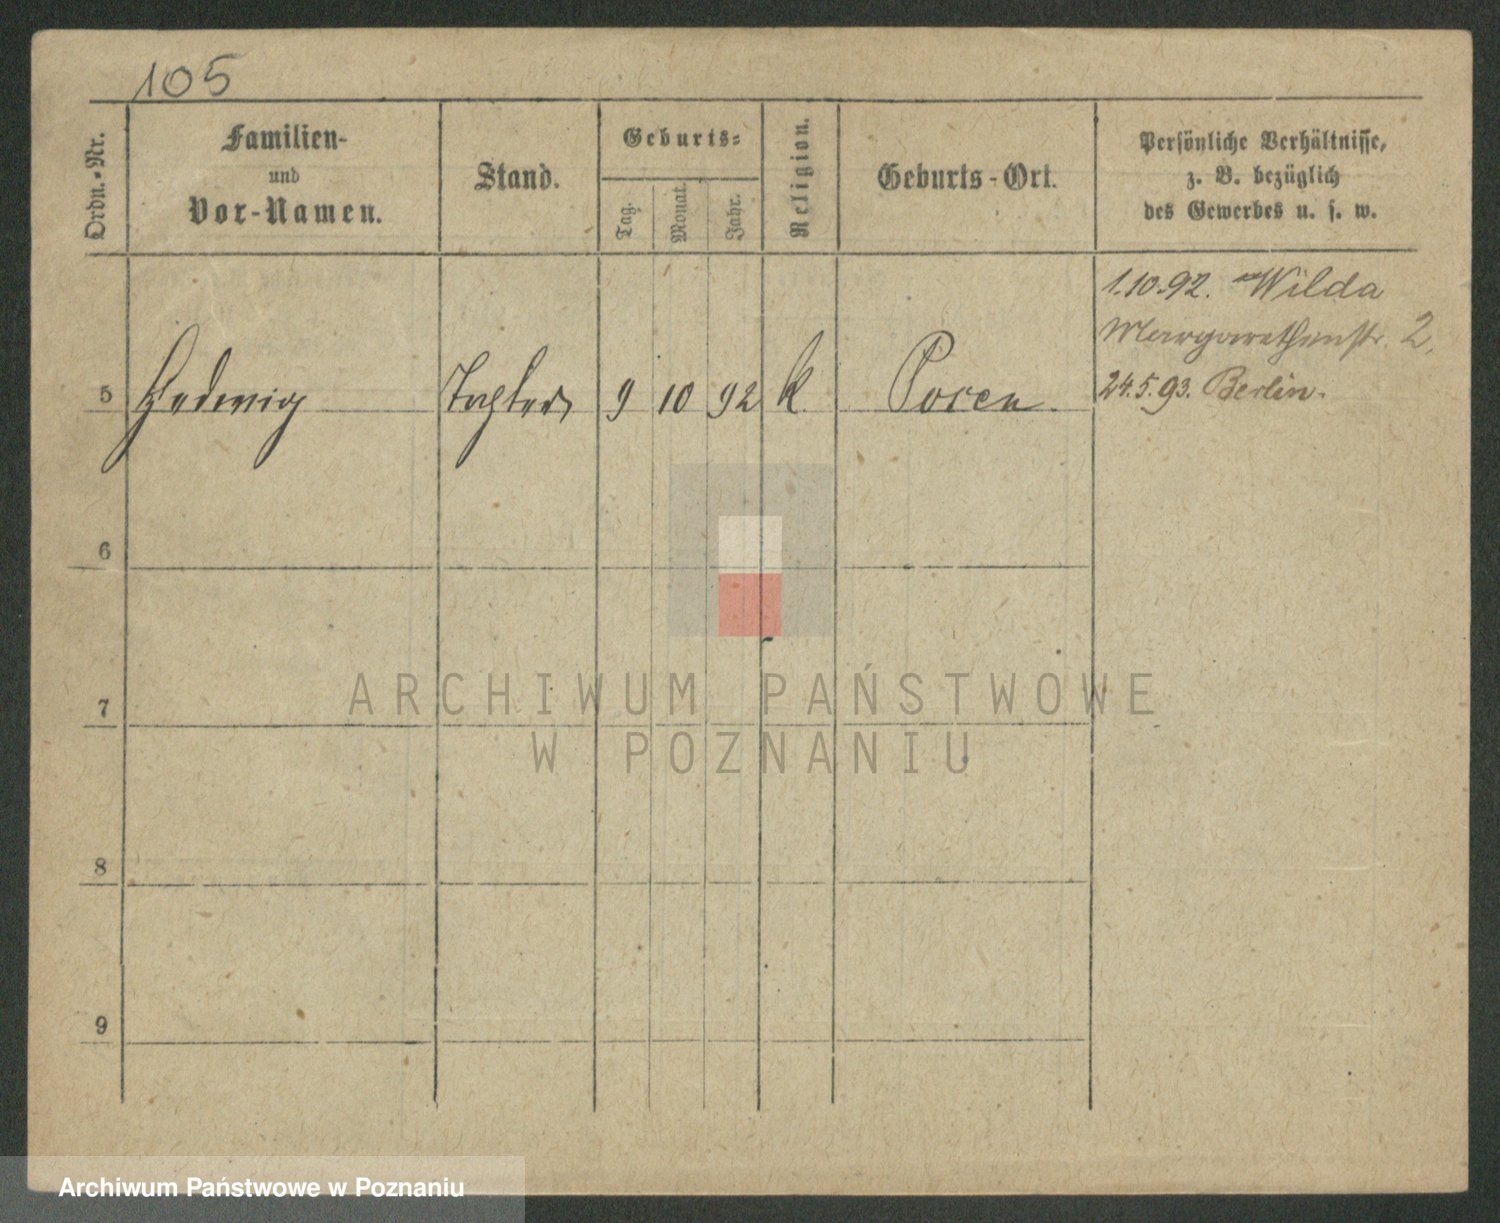 105
Ordn.-Nr.
Familien-
und
Vor-Namen.
Stand.
Geburts-
Tag.
Monat.
Jahr.
Religion.
Geburts-Ort.
Persönliche Verhältnisse,
z. B. bezüglich
des Gewerbes u. s. w.
1.10.92. Wilda
Margarethenstr. 2.
5 Hedwig Tochter 9 10 92 k. Posen. 24.5.93. Berlin.
6
7
8
9
ARCHIWUM PAŃSTWOWE
W POZNANIU
Archiwum Państwowe w Poznaniu